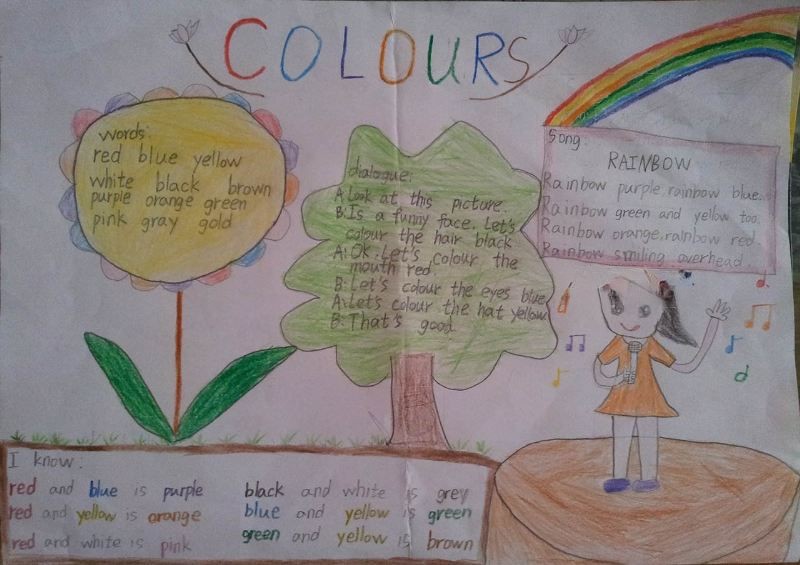 COLOURS
words:
red blue yellow
white black brown
purple orange green
pink gray gold
dialogue:
A: Look at this picture.
B: Is a funny face. Let's
colour the hair black
A: Ok. Let's colour the
mouth red.
B: Let's colour the eyes blue
A: Let's colour the hat yellow
B: That's good.
Song:
RAINBOW
Rainbow purple rainbow blue.
Rainbow green and yellow too.
Rainbow orange, rainbow red.
Rainbow smiling overhead.
I know:
red and blue is purple
red and yellow is orange
red and white is pink
black and white is grey
blue and yellow is green
green and yellow is brown